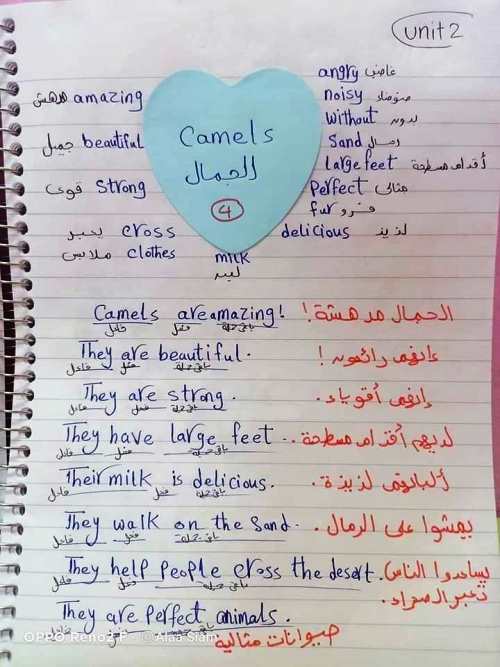 unit 2
angry غاضب
مدهش amazing
noisy ضوضاء
without بدون
جميل beautiful
Sand رمال
Camels
الجمال
4
large feet أقدام مسطحة
قوى Strong
Perfect مثالى
fur فرو
يعبر cross
delicious لذيذ
ملابس clothes
milk
لبن
Camels are amazing! الجمال مدهشة!
فاعل فعل باقى جملة
They are beautiful. إنهم رائعون!
فاعل فعل باقى جملة
They are strong. إنهم أقوياء.
فاعل فعل باقى جملة
They have large feet. لديهم أقدام مسطحة.
فاعل فعل باقى جملة
Their milk is delicious. ألبانهم لذيذة.
فاعل فعل باقى جملة
They walk on the Sand. يمشوا على الرمال.
فاعل فعل باقى جملة
They help people cross the desert. يساعدوا الناس
فاعل فعل باقى جملة
تعبر الصحراء.
They are Perfect animals.
فاعل فعل باقى جملة
حيوانات مثالية
OPPO Reno2 F © Alaa Slam